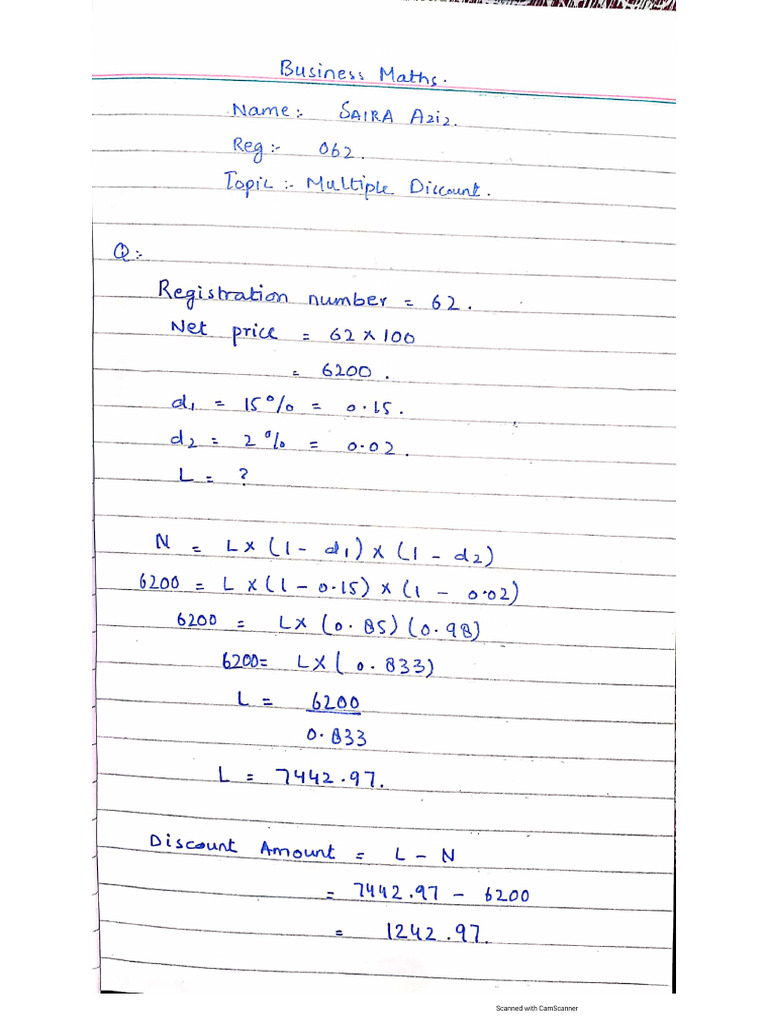 Business Maths.
Name:- SAIRA Aziz.
Reg:- 062.
Topic:- Multiple Discount.
Q:-
Registration number = 62.
Net price = 62 x 100
= 6200.
d1 = 15% = 0.15.
d2 = 2% = 0.02.
L = ?
N = L x (1 - d1) x (1 - d2)
6200 = L x (1 - 0.15) x (1 - 0.02)
6200 = L x (0.85) (0.98)
6200 = L x (0.833)
L = 6200
0.833
L = 7442.97.
Discount Amount = L - N
= 7442.97 - 6200
= 1242.97.
Scanned with CamScanner